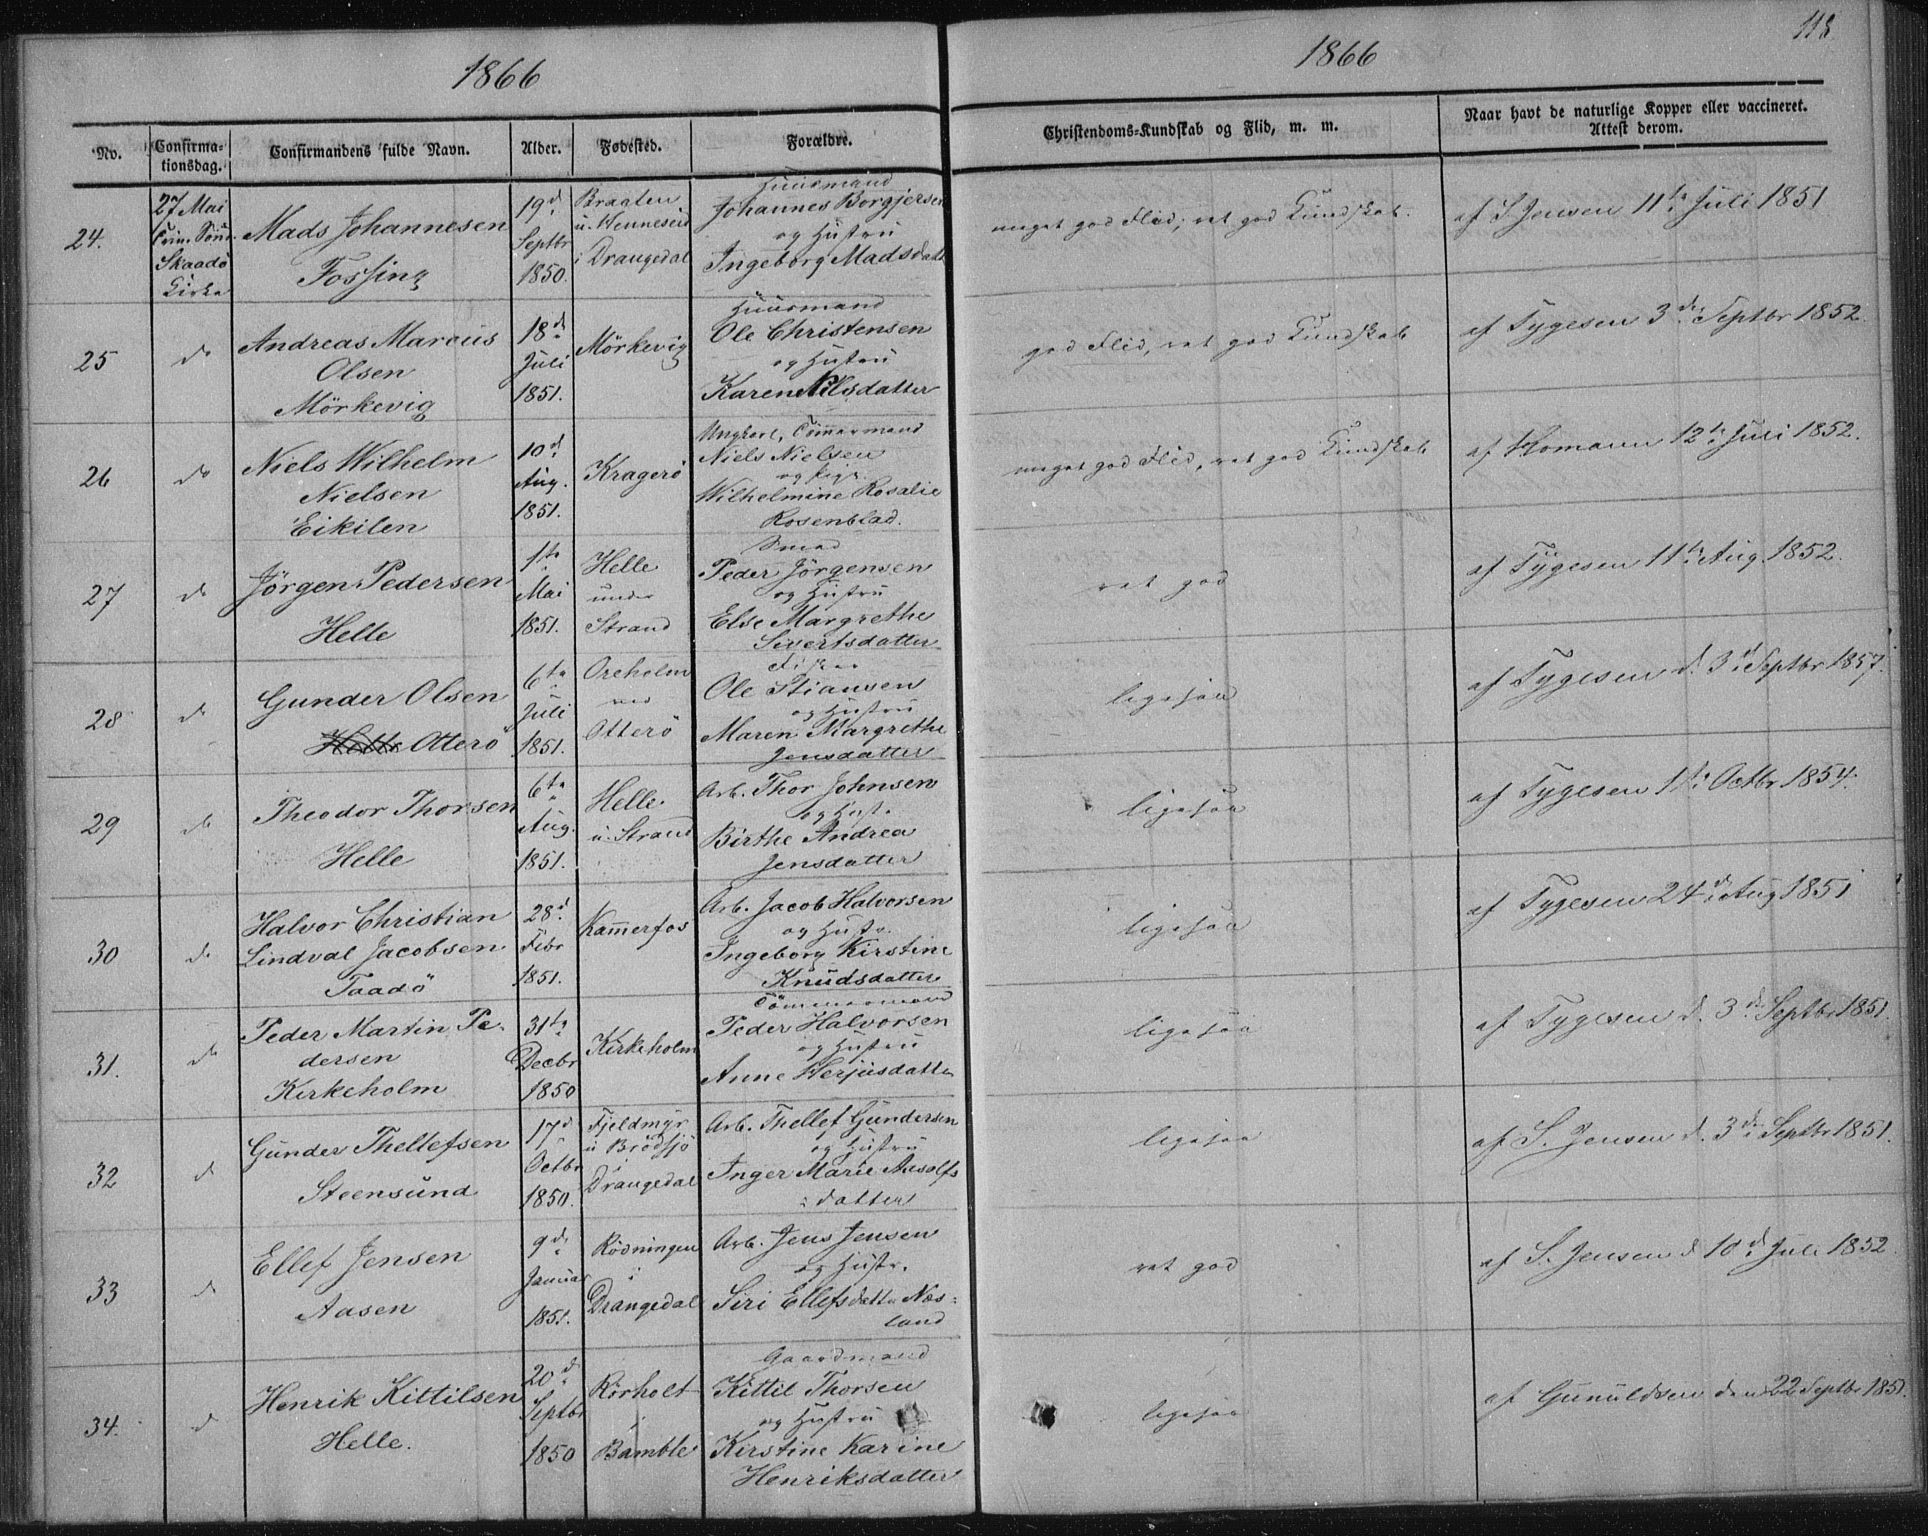 1866
1866
118
No.
Confirma-
tionsdag.
Confirmandens fulde Navn.
Alder.
Fødested.
Forældre.
Christendoms-Kundskab og Flid, m. m.
Naar havt de naturlige Kopper eller vaccineret.
Attest derom.
24.
27 Mai
Skaadö
Kirke
Mads Johannesen
Fossing
19d
Septbr
1850.
Braaten
u. Henneseid
i Drangedal
Huusmand
Johannes Borgjersen
og Hustru
Ingeborg Madsdatt
meget god Flid; ret god Kundskab.
af S. Jensen 11te Juli 1851
25
do
Andreas Marcus
Olsen
Mörkevig
18de
Juli
1851.
Mörkevig
Huusmand
Ole Christensen
og Hustru
Karen Nilsdatter
god Flid, ret god Kundskab
af Tygesen 3de Septbr 1852.
26
do
Niels Wilhelm
Nielsen
Eikilen
10d
Aug.
1851.
Kragerö
Ungkarl, Tömmermand
Niels Nielsen
og Pige
Wilhelmine Rosalie
Rosenblad.
meget god Flid, ret god Kundskab
af Homann 12te Juli 1852.
27
do
Jörgen Pedersen
Helle
1te
Mai
1851.
Helle
under
Strand
Smed
Peder Jörgensen
og Hustru
Else Margrethe
Sivertsdatter
ret god
af Tygesen 11te Aug. 1852.
28
do
Gunder Olsen
Otterö
6te
Juli
1851.
Oreholm
ved
Otterö
Fisker
Ole Stiansen
og Hustru
Maren Margrethe
Jensdatter
ligesaa
af Tygesen d. 3d Septbr 1857.
29
do
Theodor Thorsen
Helle
6te
Aug.
1851.
Helle
u. Strand
Arb. Thor Johnsen
og Hust.
Birthe Andrea
Jensdatter
ligesaa
af Tygesen 1te Octbr 1854.
30
do
Halvor Christian
Lindval Jacobsen
Taadö
28d
Febr
1851.
Kammerfos
Arb. Jacob Halvorsen
og Hustr.
Ingeborg Kirstine
Knudsdatter
ligesaa
af Tygesen 24d Aug 1851
31.
do
Peder Martin Pe-
dersen
Kirkeholm
31te
Decbr
1850
Kirkeholm
Tömmermand
Peder Halvorsen
og Hustru
Anne Herjusdatter
ligesaa
af Tygesen d. 3de Septbr 1851.
32
d
Gunder Thellefsen
Steensund
17d
Octbr
1850.
Fjeldmyr
u Brödsjö
i
Drangedal
Arb. Thellef Gundersen
og Hustru
Inger Marie Ausolfs
datter
ligesaa
af S. Jensen d. 3de Septbr 1851.
33
d
Ellef Jensen
Aasen
9de
Januar
1851.
Rödningen
i
Drangedal
Arb. Jens Jensen
og Hustr.
Siri Ellefsdatter Næs-
land
ret god
af S. Jensen d 10d Juli 1852.
34.
d
Henrik Kittilsen
Helle.
20d
Septbr
1850
Rörholt
i
Bamble
Gaardmand
Kittil Thorsen
og Hustru
Kirstine Karine
Henriksdatter
ligesaa
af Gunuldsen den 22 Septbr 1851.